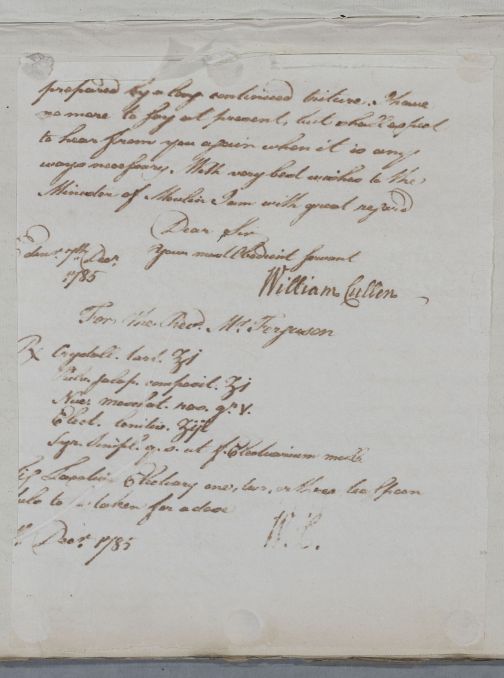 prepared by a long continued triture. I have
no more to say at present, but shall expect
to hear from you again when it is any
ways necessary. With very best wishes to the
Minister of Moulin I am with great regard
Dear Sir
Your most Obedient servant
7th Decr.
1785
William Cullen
For the Revd. Mr. Ferguson
℞ Crystall. tart. ℥j
Pulv. jalap. composit. ℥j
Nuc. moschat. gr. V.
Elect. lenitiv.
Syr. simpl. q. s. ut f. Electuarium molle
Laxative Electuary one, two, or three tea spoon
to be taken for a dose
Decr. 1785
W. C.